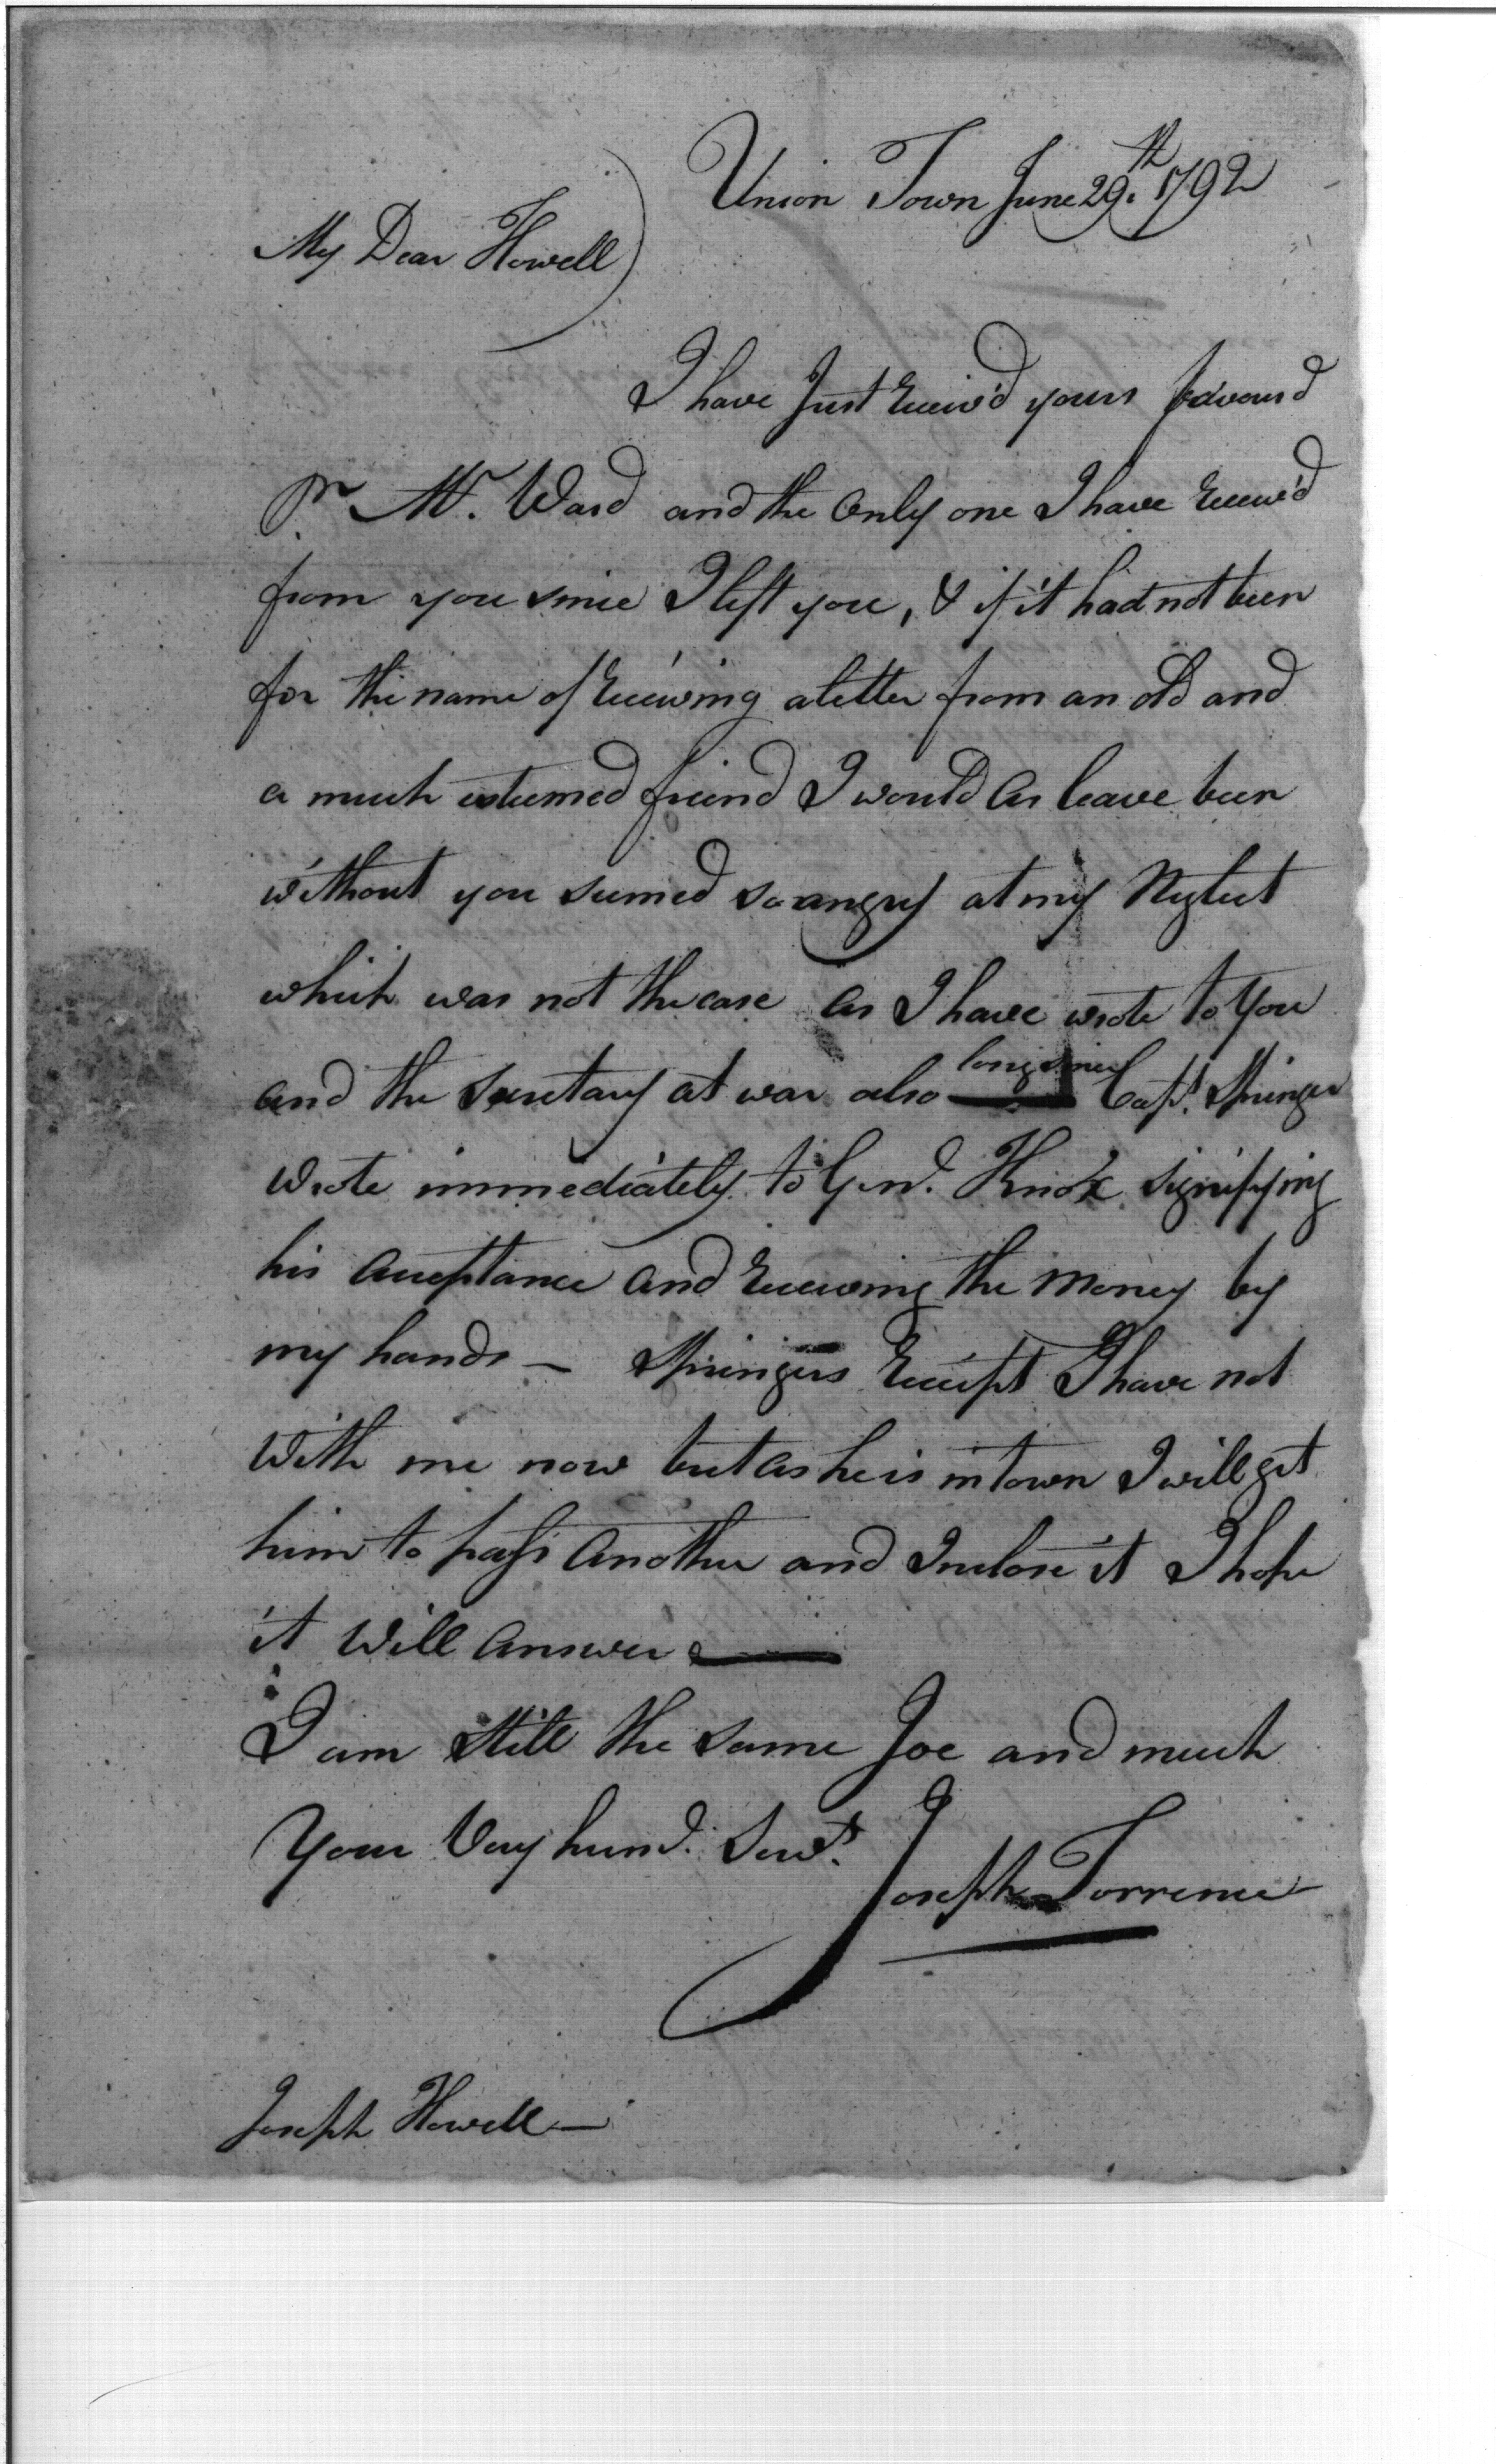 Union Town June 29.th 1792
My Dear Howell
I have Just Receiv'd yours favour'd
Pr Mr. Ward and the Only one I have Receiv'd
from you since I left you, & if it had not been
for the name of Receiving a letter from an old and
a much esteemed friend I would As leave been
without you seemed so angry at my Neglect
which was not the case As I have wrote to You
long since
and the Secretary at war also Capt. Springer
Wrote immediately to Genl. Knox signifying
his Acceptance And Receiving the Money by
my hands — Springers Receipt I have not
With me now but As he is in town I will get
him to pass Another and Inclose it I hope
it Will Answer —
I am Still the same Joe and much
Your Very humd. Servt.
Joseph Torrence
Joseph Howell —